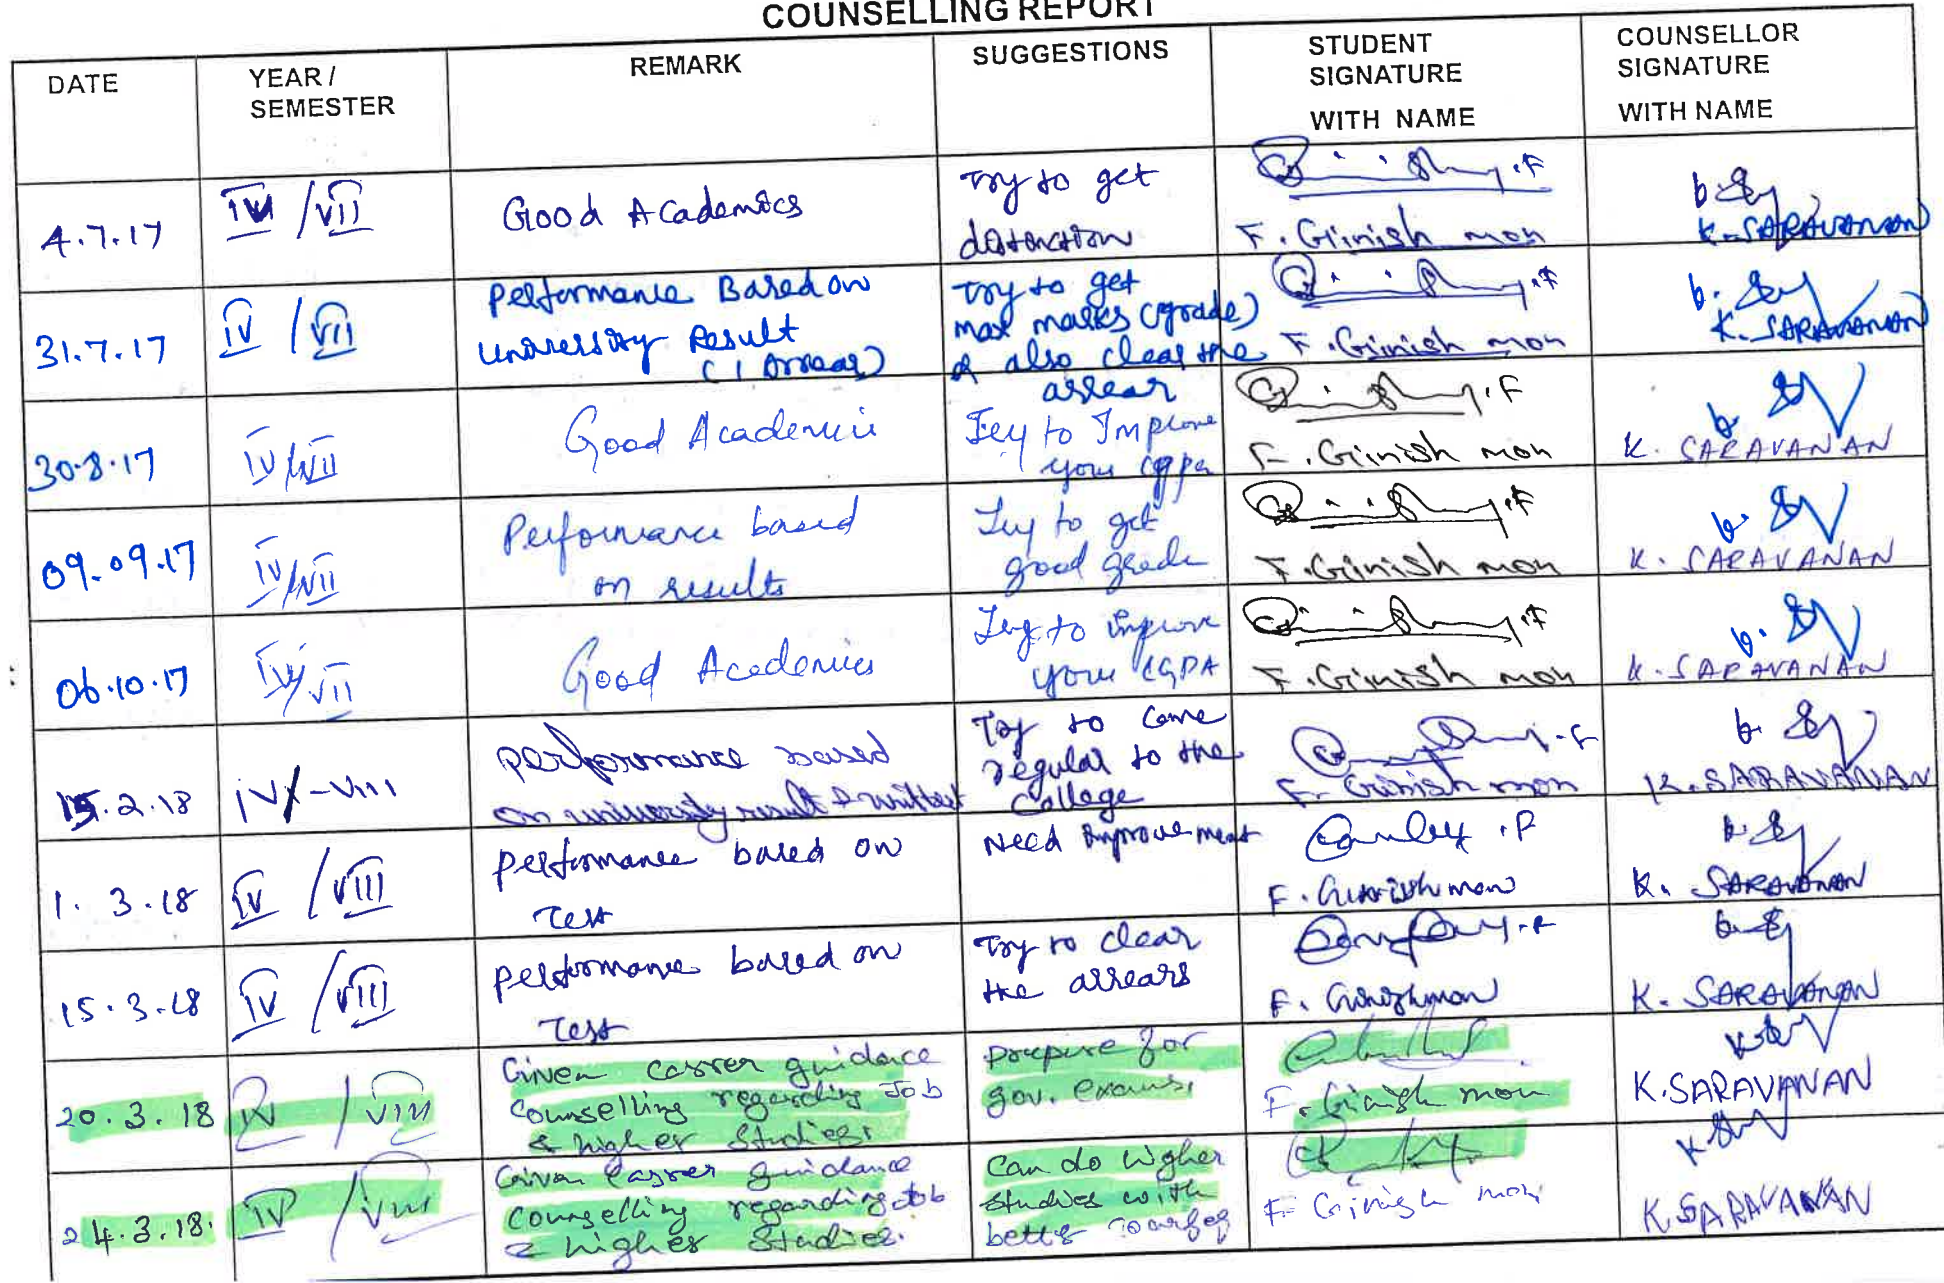 COUNSELLING REPORT
DATE
YEAR /
SEMESTER
REMARK
SUGGESTIONS
STUDENT
SIGNATURE
WITH NAME
COUNSELLOR
SIGNATURE
WITH NAME
4.7.17
IV /VII
Good Academics
Try to get
distinction
F. Ginish mon
K. SARAVANAN
31.7.17
IV /VII
Performance Based on
University Result
(1 Arrear)
Try to get
max marks (grade)
& also clear the
arrear
F. Ginish mon
K. SARAVANAN
30.8.17
IV/VII
Good Academic
Try to Improve
your cgpa
F. Ginish mon
K. SARAVANAN
09.09.17
IV/VII
Performance based
on results
Try to get
good grade
F. Ginish mon
K. SARAVANAN
06.10.17
IV/VII
Good Academics
Try to improve
your CGPA
F. Ginish mon
K. SARAVANAN
15.2.18
IV/-VIII
performance based
on university result &
Try to come
regular to the
College
F. Ginish mon
K. SARAVANAN
1. 3.18
IV /VIII
Performance based on
Test
Need Improvement
F. Ginish mon
K. SARAVANAN
15.3.18
IV /VIII
Performance based on
Test
Try to clear
the arrears
F. Ginishmon
K. SARAVANAN
20.3.18
IV / VIII
Given carrer guidance
Counselling regarding Job
& higher Studies.
prepare for
gov. exams.
F. Ginish mon
K.SARAVANAN
24.3.18.
IV /VIII
Given carrer guidance
Counselling regarding Job
& higher Studies.
Can do higher
studies with
F. Ginish mon
K.SARAVANAN